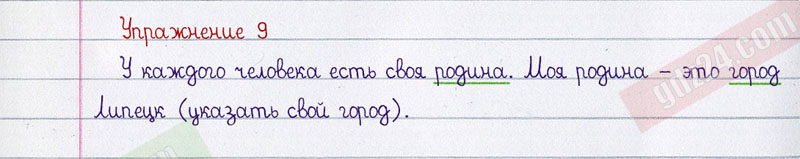 Упражнение 9
У каждого человека есть своя родина. Моя родина – это город
Липецк (указать свой город).
gdz24.com